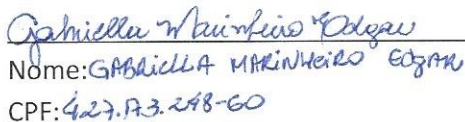 Gabriella Marinheiro Edgar
Nome:GABRIELLA MARINHEIRO EDGAR
CPF:427.173.248-60